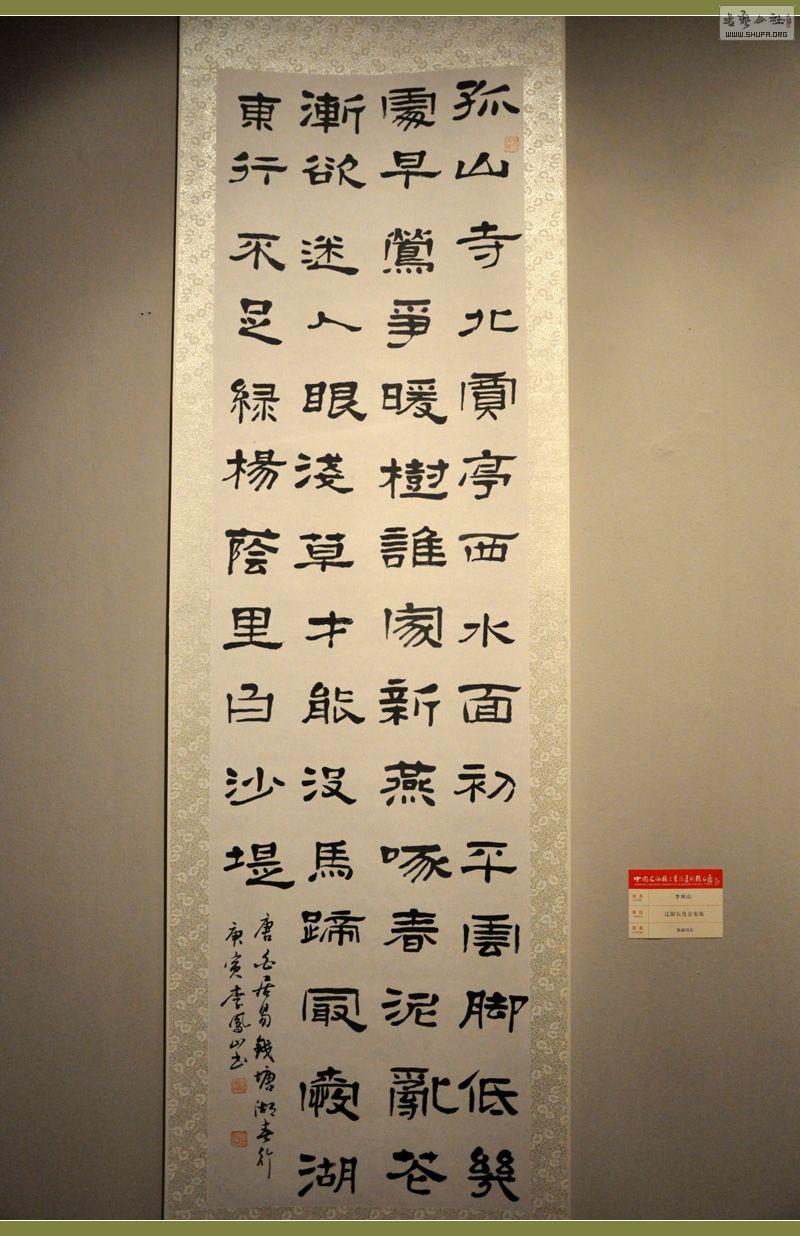 孤山寺北賈亭西水面初平雲脚低幾
處早鶯爭暖樹誰家新燕啄春泥亂花
漸欲迷人眼淺草才能沒馬蹄最愛湖
東行不足緑楊蔭里白沙堤
唐白居易錢塘湖春行
庚寅李鳳山书
李凤山
辽阳石化公安处
書藝公社
WWW.SHUFA.ORG